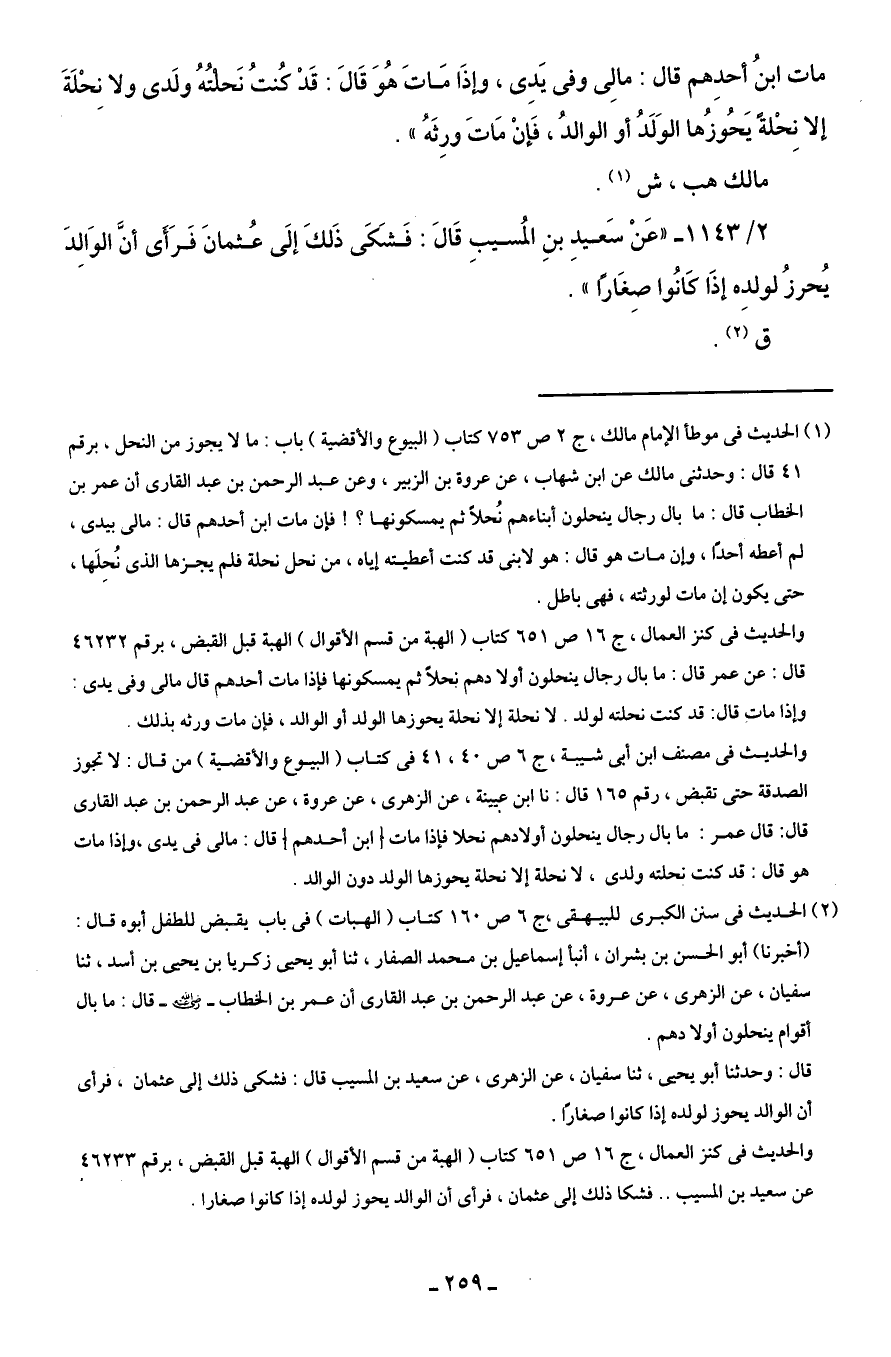 مات ابنُ أحدِهم قال : مالِى وفى يَدِى ، وإذَا مَاتَ هُوَ قَالَ : قَدْ كُنتُ نَحلْتُهُ ولَدى ولا نِحْلَةَ
إلا نِحْلةً يَحُوزُها الوَلَدُ أو الوالدُ ، فَإنْ مَاتَ ورِثَهُ » .
مالك هب ، ش (١) .
٢/ ١١٤٣ـ «عَنْ سَعيدِ بنِ المُسيبِ قَالَ : فَشكَى ذَلكَ إلَى عُثمانَ فَرأَى أنَّ الوَالِدَ
يُحرزُ لولدِه إذَا كَانُوا صِغَارًا » .
ق (٢) .
(١) الحديث فى موطأ الإمام مالك ، ج ٢ ص ٧٥٣ كتاب ( البيوع والأقضية ) باب : ما لا يجوز من النحل ، برقم
٤١ قال : وحدثنى مالك عن ابن شهاب ، عن عروة بن الزبير ، وعن عبد الرحمن بن عبد القارى أن عمر بن
الخطاب قال : ما بال رجال ينحلون أبناءهم نُحلاً ثم يمسكونها ؟ ! فإن مات ابن أحدهم قال : مالى بيدى ،
لم أعطه أحدًا ، وإن مات هو قال : هو لابنى قد كنت أعطيته إياه ، من نحل نحلة فلم يجزها الذى نُحلَها ،
حتى يكون إن مات لورثته ، فهى باطل .
والحديث فى كنز العمال ، ج ١٦ ص ٦٥١ كتاب ( الهبة من قسم الأقوال ) الهبة قبل القبض ، برقم ٤٦٢٣٢
قال : عن عمر قال : ما بال رجال ينحلون أولا دهم نحلاً ثم يمسكونها فإذا مات أحدهم قال مالى وفى يدى :
وإذا مات قال: قد كنت نحلته لولد . لا نحلة إلا نحلة يحوزها الولد أو الوالد ، فإن مات ورثه بذلك .
والحديث فى مصنف ابن أبى شيبة ، ج ٦ ص ٤٠ ، ٤١ فى كتاب ( البيوع والأقضية ) من قال : لا تجوز
الصدقة حتى تقبض ، رقم ١٦٥ قال : نا ابن عيينة ، عن الزهرى ، عن عروة ، عن عبد الرحمن بن عبد القارى
قال: قال عمر : ما بال رجال ينحلون أولادهم نحلا فإذا مات { ابن أحدهم } قال : مالى فى يدى ،وإذا مات
هو قال : قد كنت نحلته ولدى ، لا نحلة إلا نحلة يحوزها الولد دون الوالد .
(٢) الحديث فى سنن الكبرى للبيهقى ،ج ٦ ص ١٦٠ كتاب ( الهبات ) فى باب يقبض للطفل أبوه قال :
(أخبرنا) أبو الحسن بن بشران ، أنبأ إسماعيل بن محمد الصفار ، ثنا أبو يحيى زكريا بن يحيى بن أسد ، ثنا
سفيان ، عن الزهرى ، عن عروة ، عن عبد الرحمن بن عبد القارى أن عمر بن الخطاب ـ رضي الله عنه ـ قال : ما بال
أقوام ينحلون أولا دهم .
قال : وحدثنا أبو يحيى ، ثنا سفيان ، عن الزهرى ، عن سعيد بن المسيب قال : فشكى ذلك إلى عثمان ، فرأى
أن الوالد يحوز لولده إذا كانوا صغارًا .
والحديث فى كنز العمال ، ج ١٦ ص ٦٥١ كتاب ( الهبة من قسم الأقوال ) الهبة قبل القبض ، برقم ٤٦٢٣٣
عن سعيد بن المسيب .. فشكا ذلك إلى عثمان ، فرأى أن الوالد يحوز لولده إذا كانوا صغارا .
ـ ٢٥٩ ـ